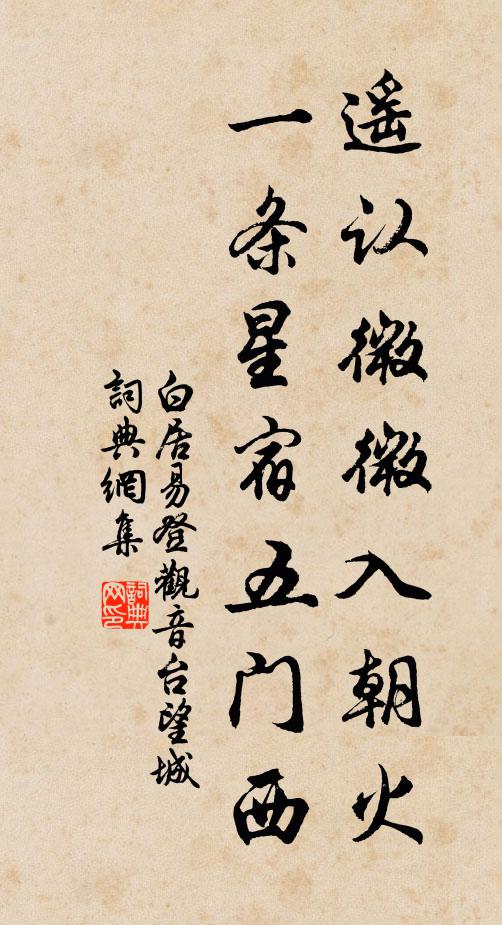 遥认微微入朝火
一条星宿五门西
白居易登觀音台望城
詞典網集
詞典
网印